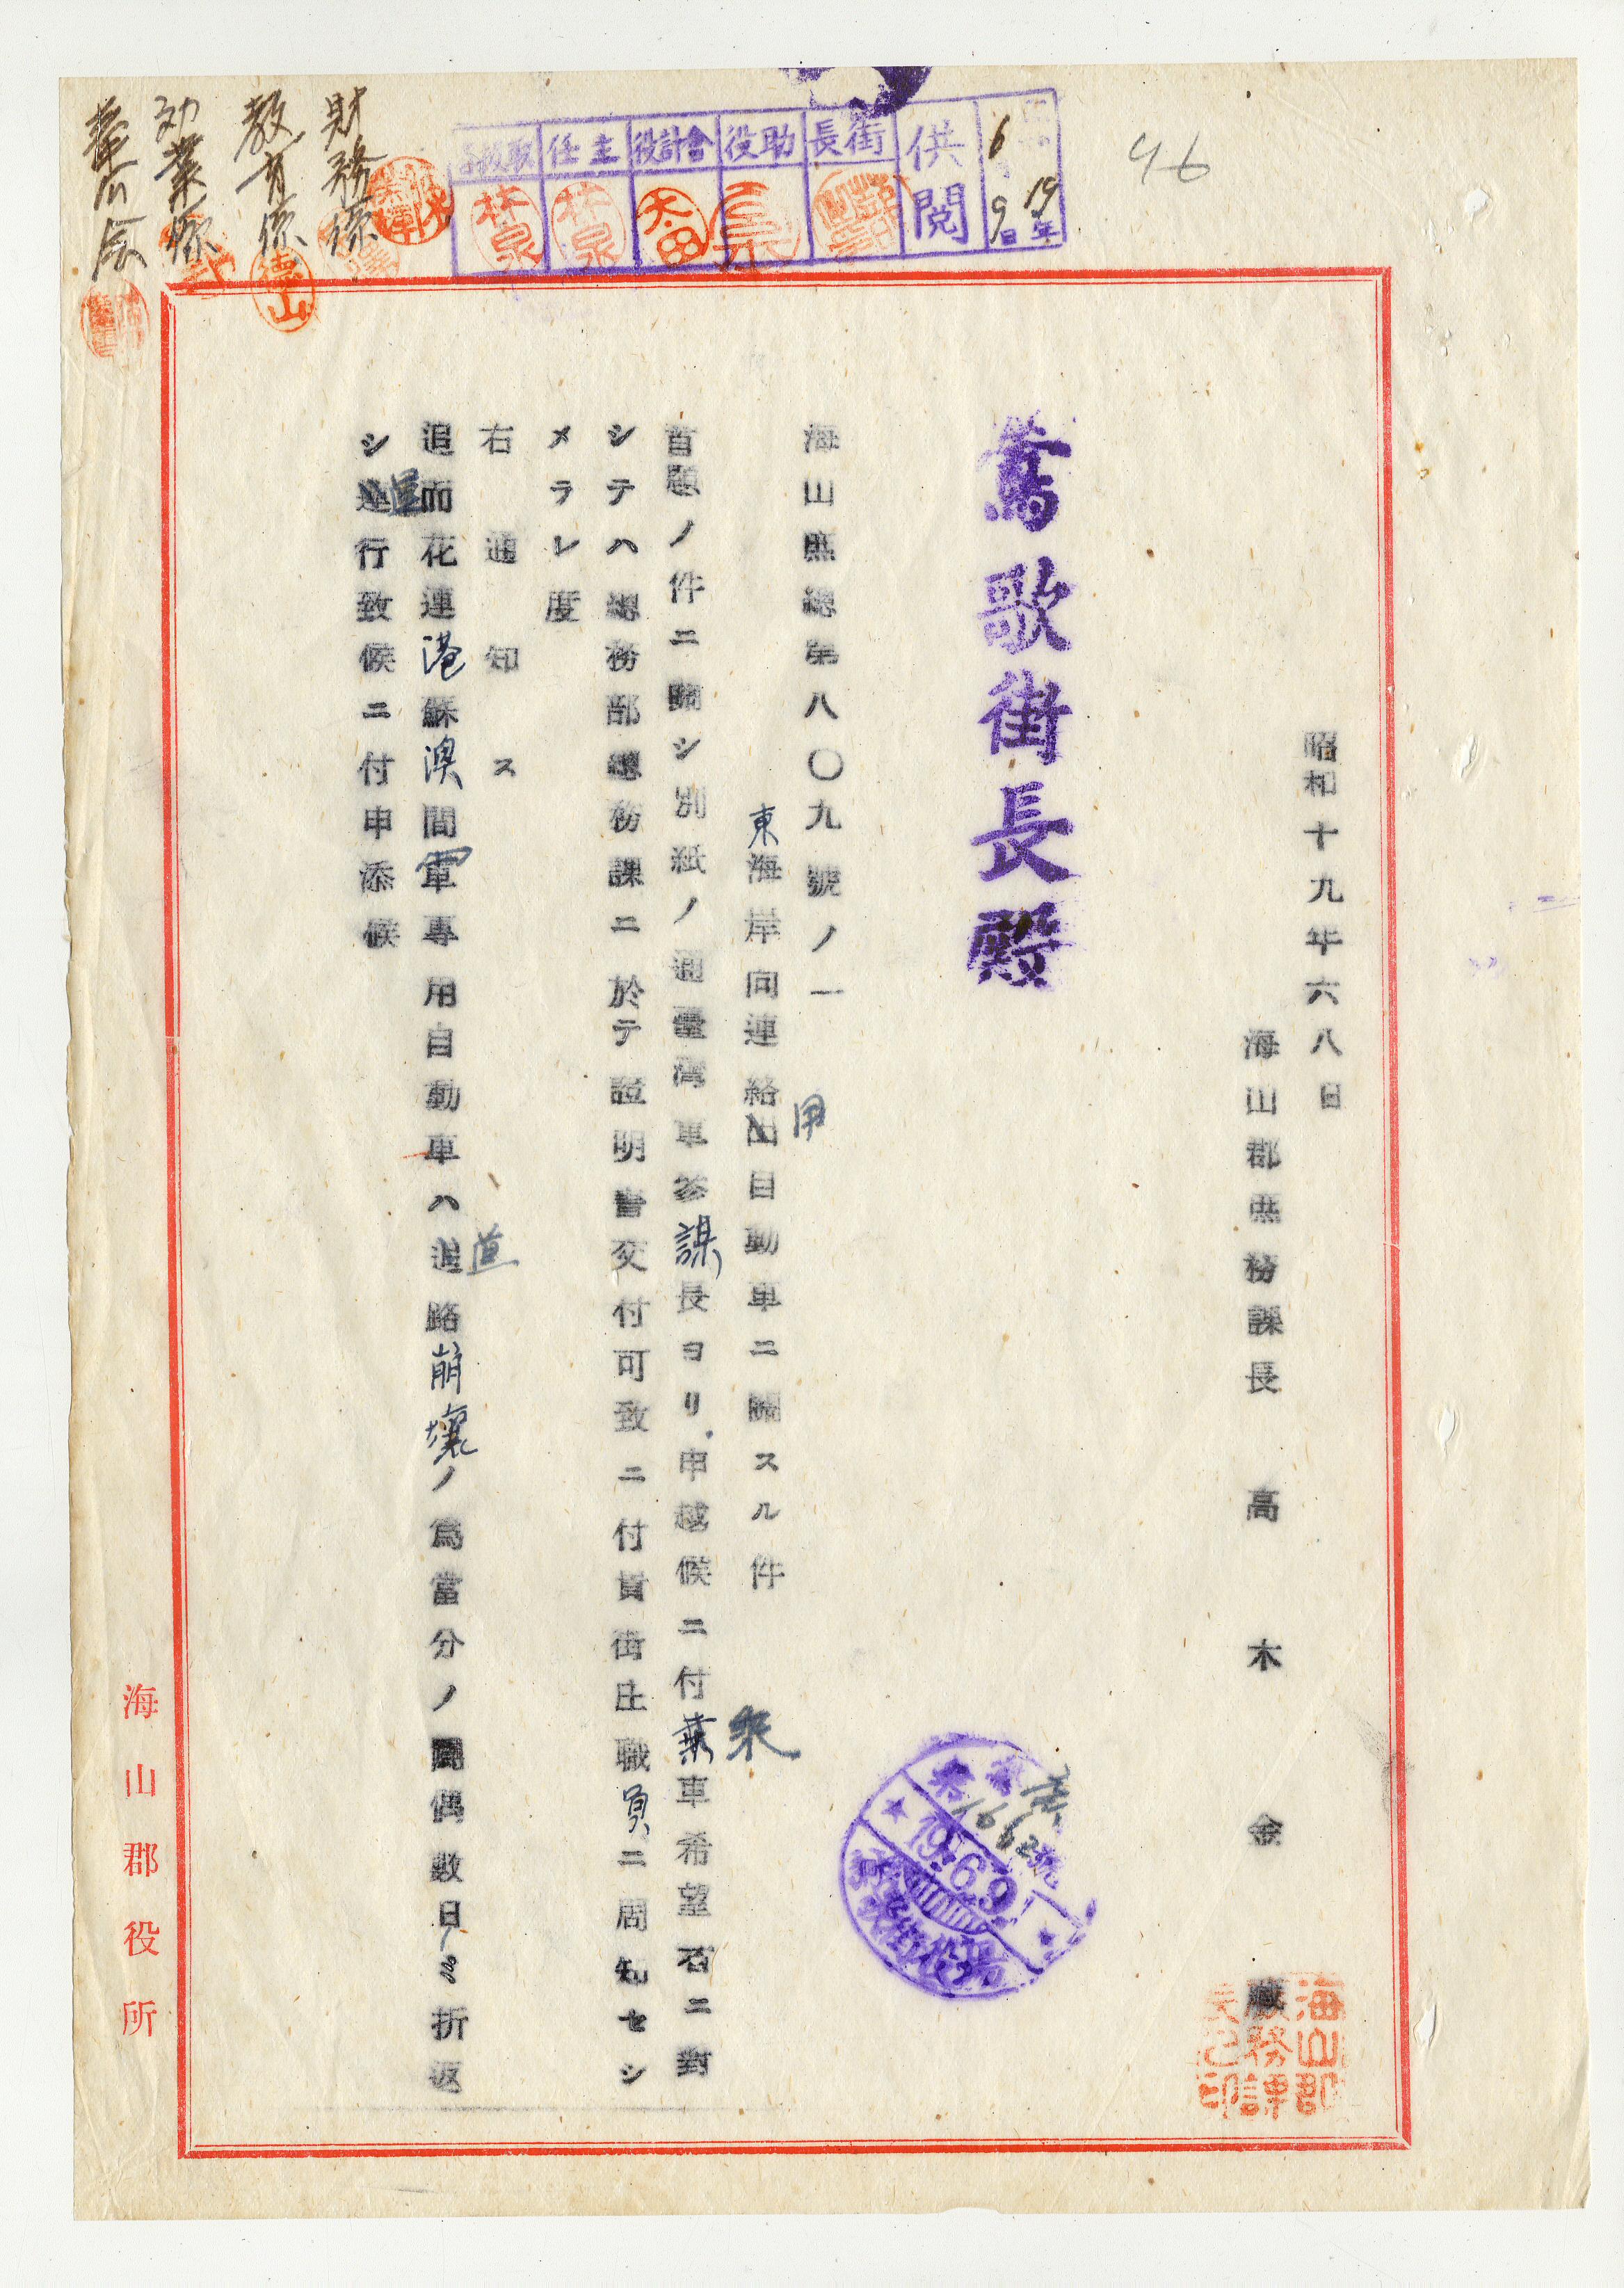 46
供閲
19年
6
9日
街長
助役
會計役
主任
太田
林泉
林泉
財務係
教育係
德山
勧業係
昭和十九年六八日
海山郡庶務課長 高木金藏
海山郡庶務課
之印
鶯歌街長殿
19.6.9
鶯歌街役場
1662號
海山庶總第八〇九號ノ一
東海岸向連絡用自動車ニ關スル件
首題ノ件ニ關シ別紙ノ通臺灣軍參謀長ヨリ申越候ニ付乘車希望者ニ對
シテハ總務部總務課ニ於テ證明書交付可致ニ付貴街庄職員ニ周知セシ
メラレ度
右通知ス
追而花連港蘇澳間軍專用自動車ハ道路崩壞ノ爲當分ノ間偶數日ニ折返
シ運行致候ニ付申添候
海山郡役所